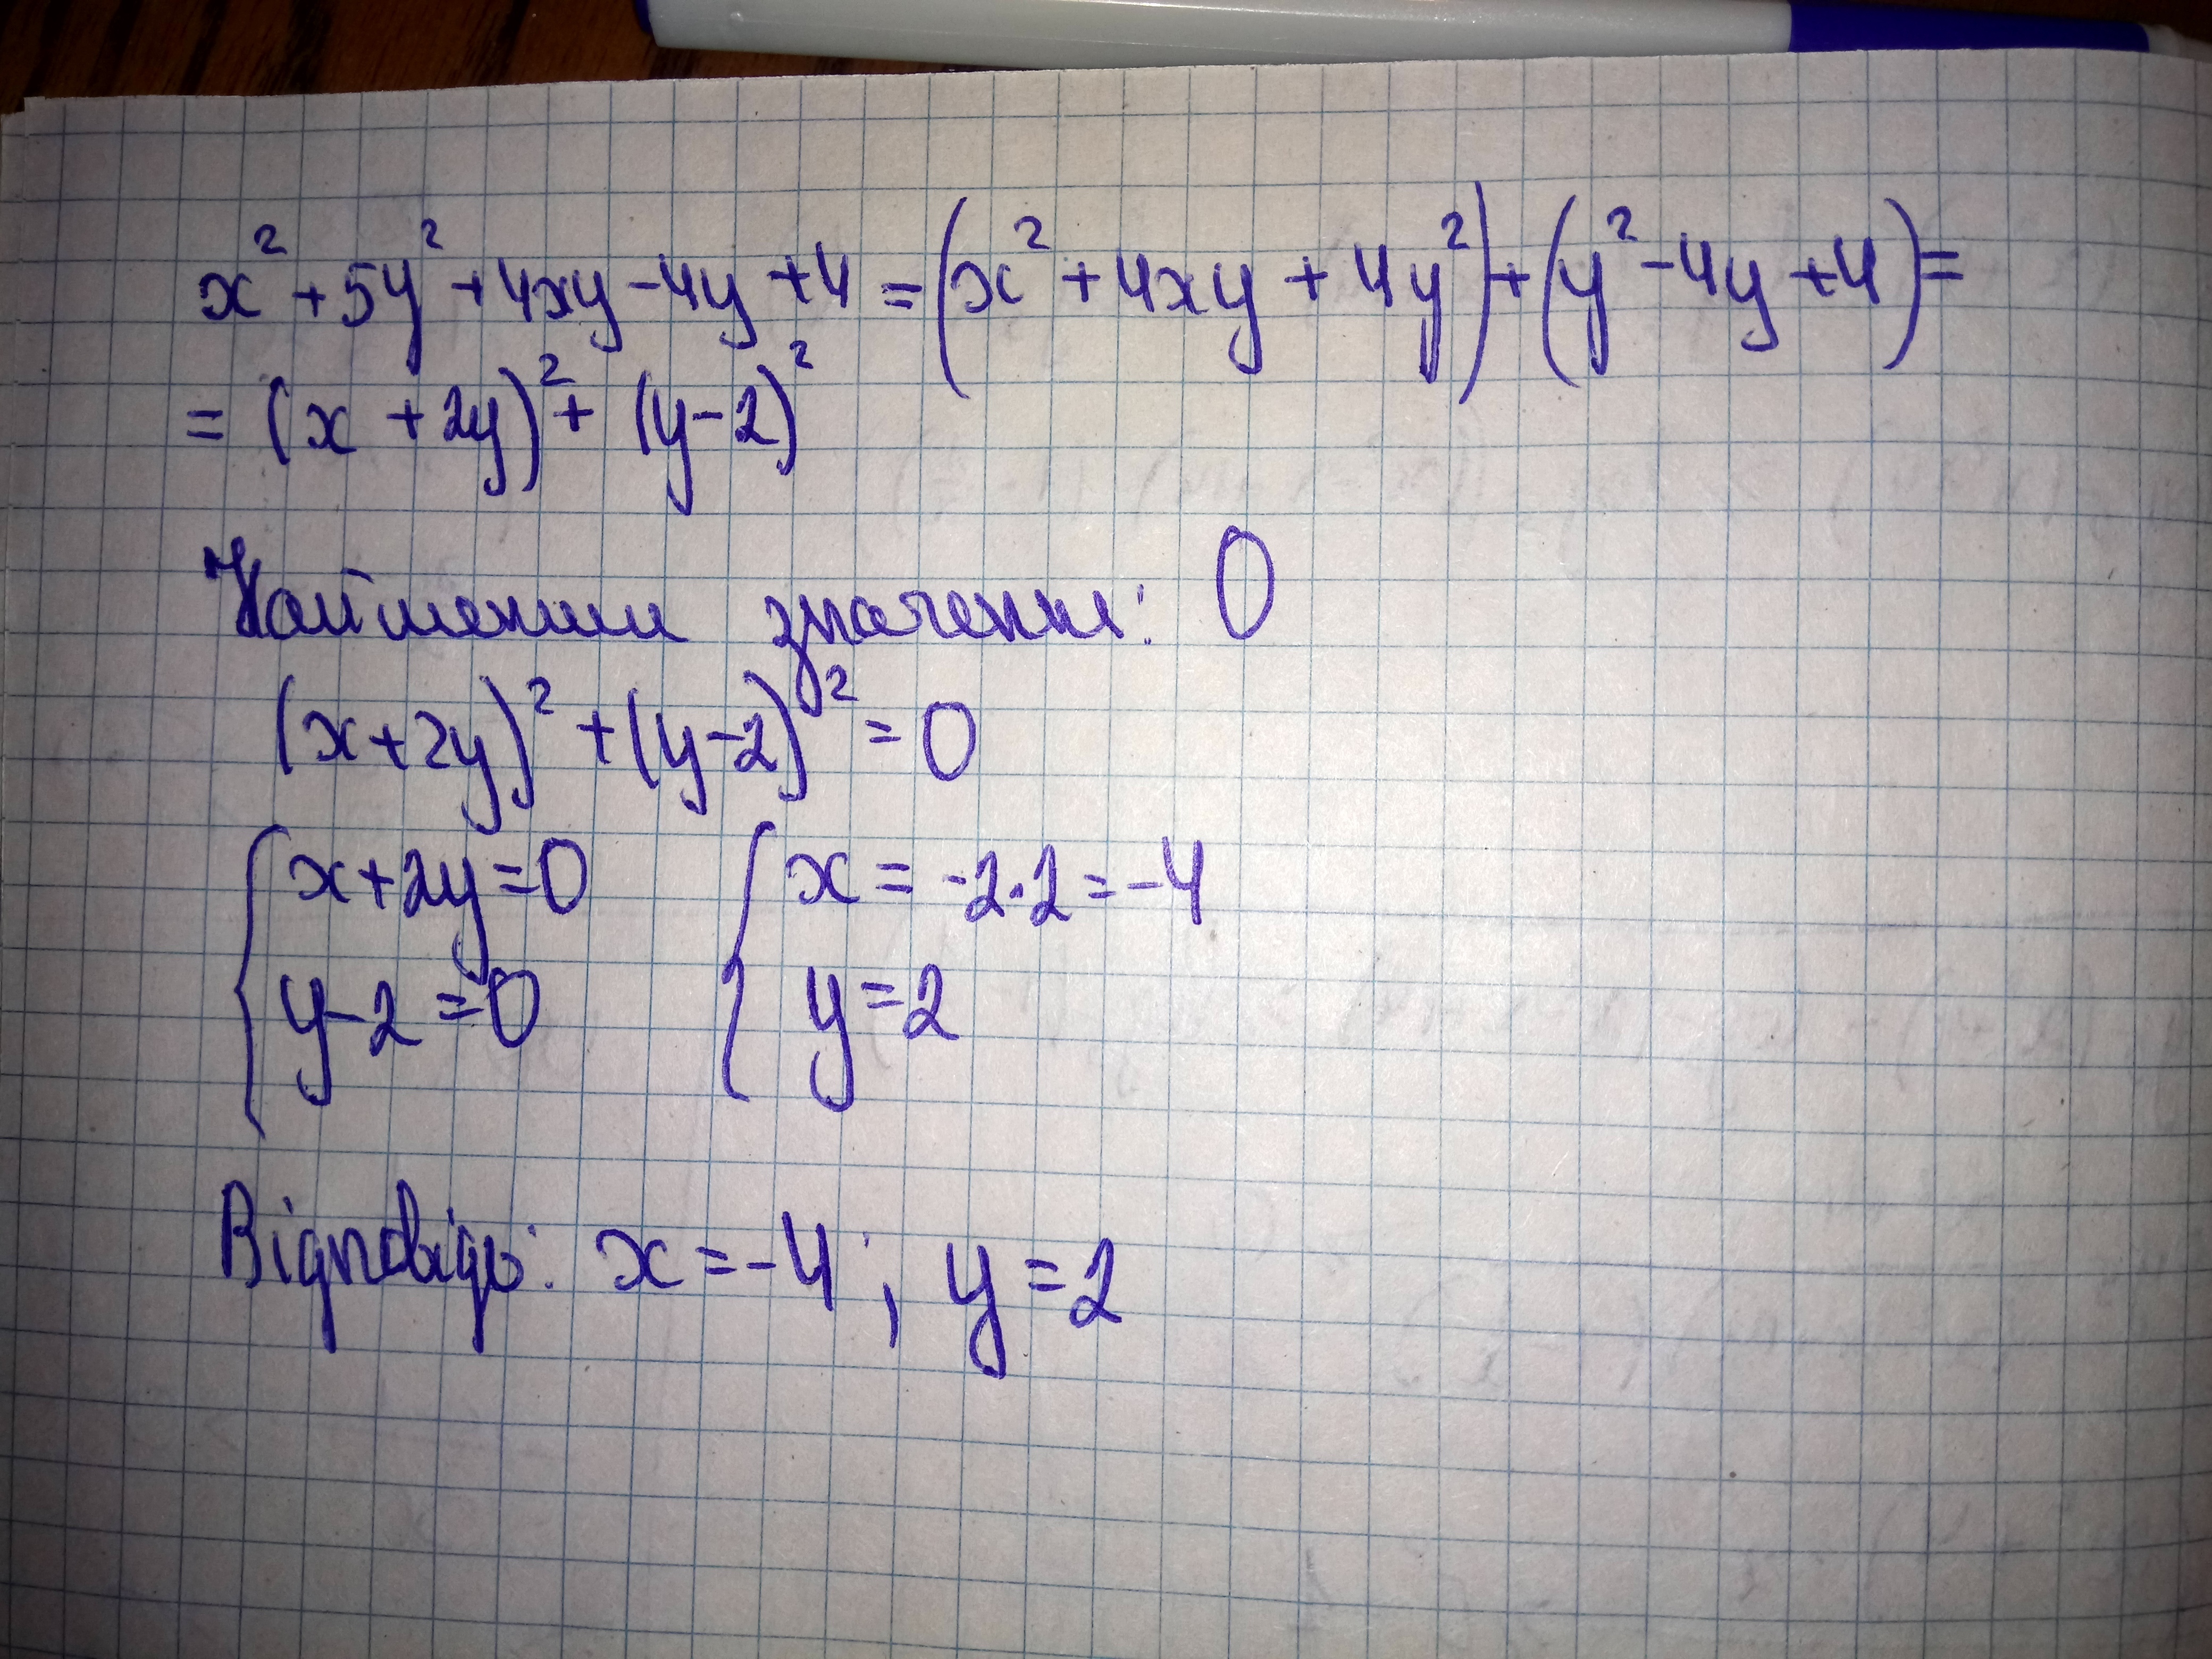 x² + 5y² + 4xy - 4y + 4 = (x² + 4xy + 4y²) + (y² - 4y + 4) =
= (x + 2y)² + (y - 2)²
Найменше значення: 0
(x + 2y)² + (y - 2)² = 0
{ x + 2y = 0 { x = -2·2 = -4
y - 2 = 0 y = 2
Відповідь: x = -4; y = 2